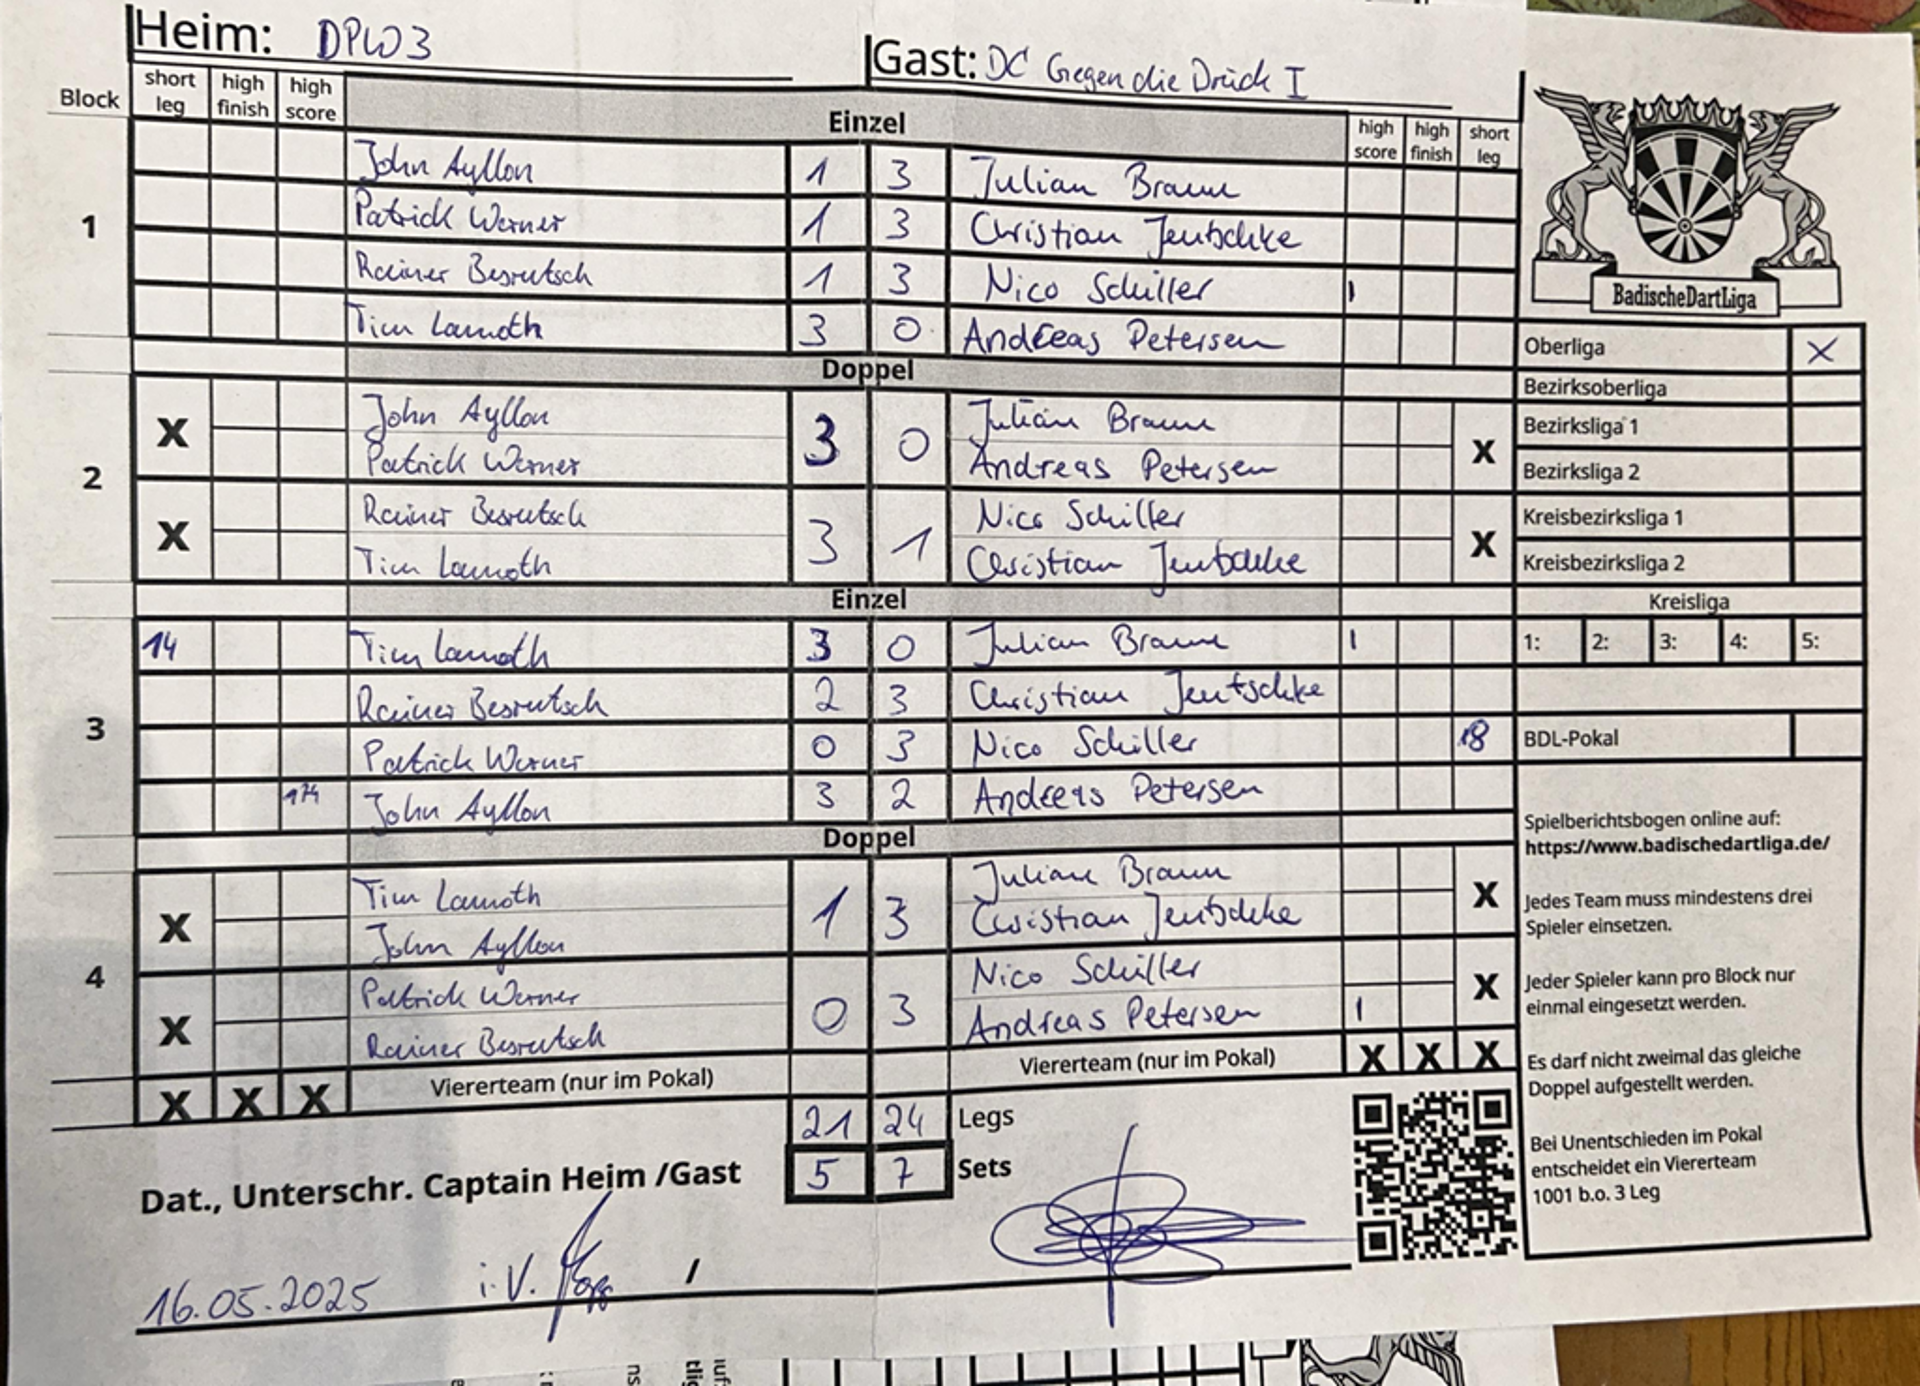 Heim: DPW3
Gast: DC Gegen die Drück I
Block short leg high finish high score
Einzel
high score high finish short leg
1
John Ayllon 1 3 Julian Braun
Patrick Werner 1 3 Christian Jeutschke
Rainer Besrutsch 1 3 Nico Schiller I
Tim Lamoth 3 0 Andreas Petersen
Doppel
2
X John Ayllon 3 0 Julian Braun X
Patrick Werner Andreas Petersen
X Rainer Besrutsch 3 1 Nico Schiller X
Tim Lamoth Christian Jeutschke
Einzel
3
14 Tim Lamoth 3 0 Julian Braun I
Rainer Besrutsch 2 3 Christian Jeutschke
Patrick Werner 0 3 Nico Schiller 18
174 John Ayllon 3 2 Andreas Petersen
Doppel
4
X Tim Lamoth 1 3 Julian Braun X
John Ayllon Christian Jeutschke
X Patrick Werner 0 3 Nico Schiller X
Rainer Besrutsch Andreas Petersen I
X X X Viererteam (nur im Pokal) Viererteam (nur im Pokal) X X X
21 24 Legs
5 7 Sets
Dat., Unterschr. Captain Heim /Gast
16.05.2025 i.V. /
BadischeDartLiga
Oberliga X
Bezirksoberliga
Bezirksliga 1
Bezirksliga 2
Kreisbezirksliga 1
Kreisbezirksliga 2
Kreisliga
1: 2: 3: 4: 5:
BDL-Pokal
Spielberichtsbogen online auf:
https://www.badischedartliga.de/
Jedes Team muss mindestens drei
Spieler einsetzen.
Jeder Spieler kann pro Block nur
einmal eingesetzt werden.
Es darf nicht zweimal das gleiche
Doppel aufgestellt werden.
Bei Unentschieden im Pokal
entscheidet ein Viererteam
1001 b.o. 3 Leg